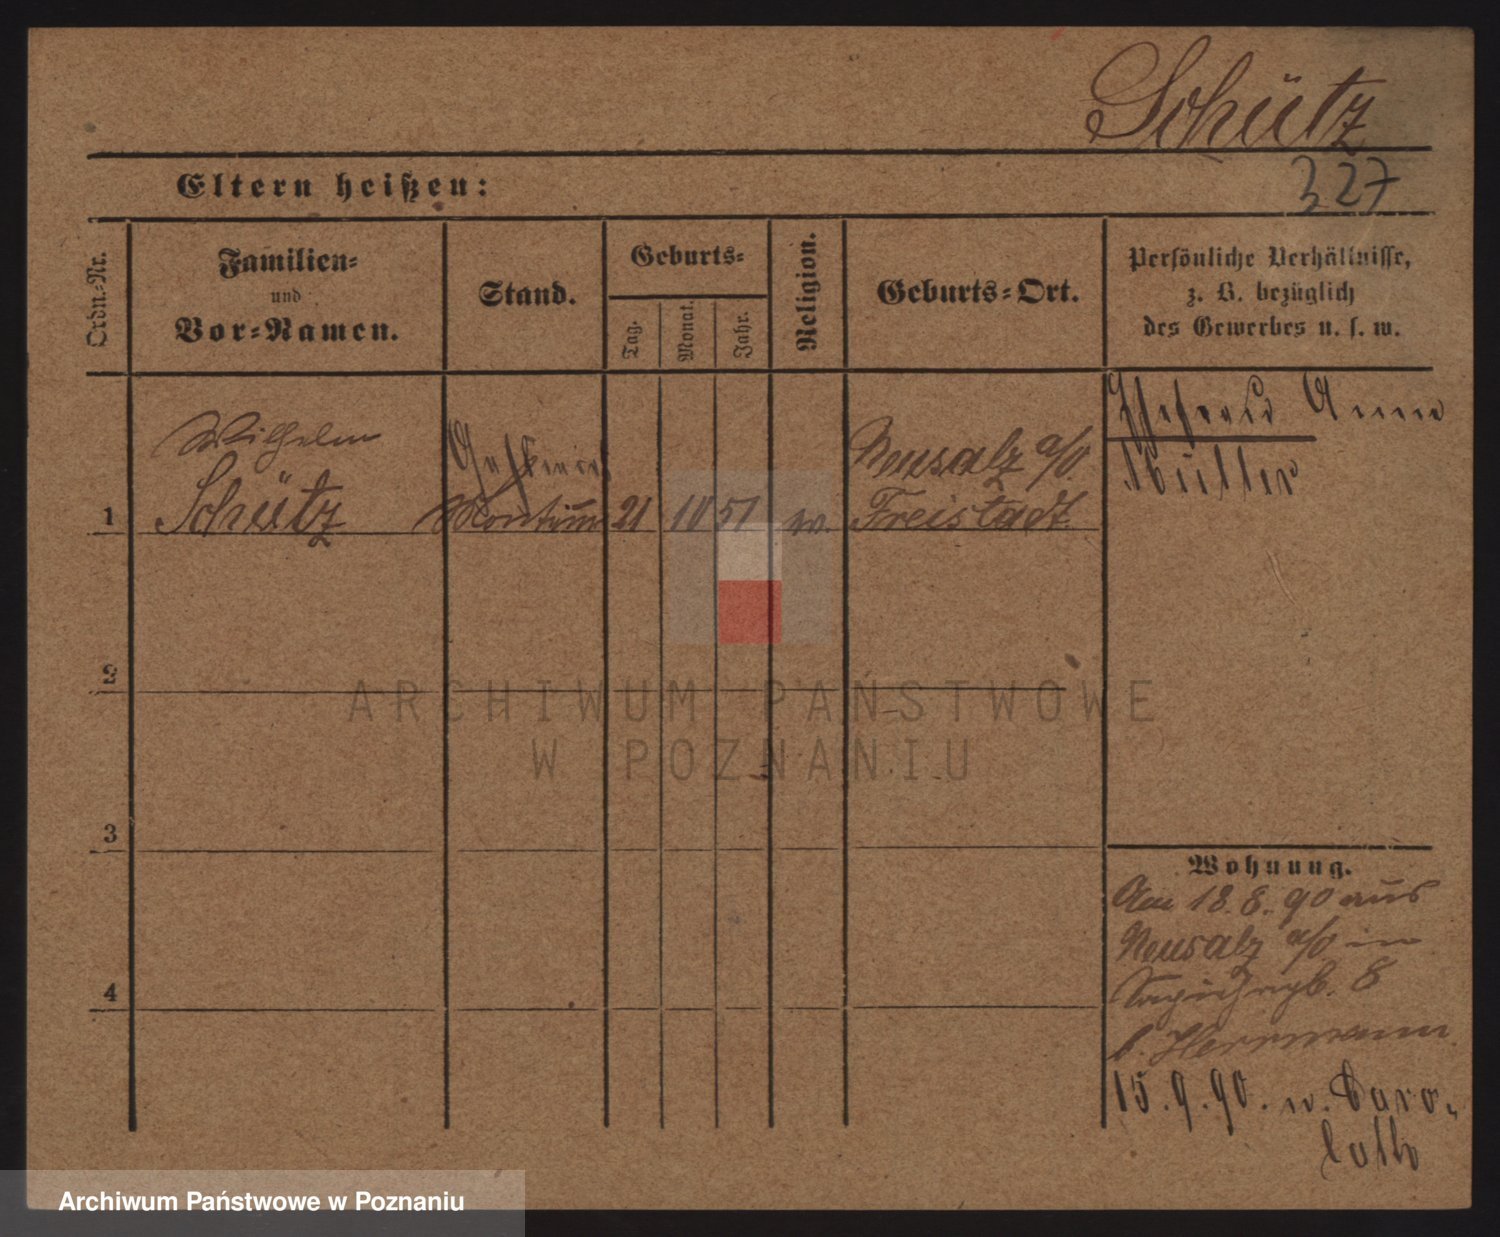 Schütz
327
Eltern heißen:
Ordn.-Nr.
Familien-
und
Vor-Namen.
Stand.
Geburts-
Tag.
Monat.
Jahr.
Religion.
Geburts-Ort.
Persönliche Verhältnisse,
z. B. bezüglich
des Gewerbes u. s. w.
Wilhelm
Schütz
1
21
10
51
Neusalz a/O.
Freistadt.
Ehefrau Anna
Müller
2
3
4
ARCHIWUM PAŃSTWOWE
W POZNANIU
Wohnung.
Am 18.8.90 aus
Neusalz a/O in
8
b. Herrmann.
15.9.90. n. Caro-
lath
Archiwum Państwowe w Poznaniu